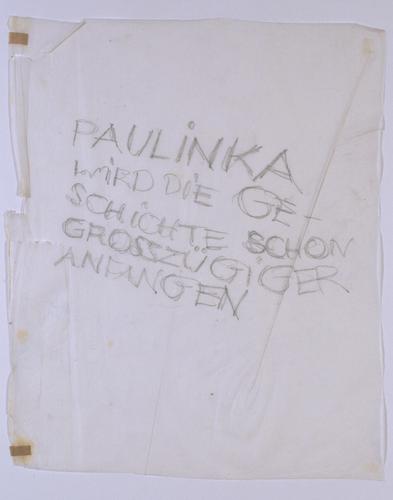 PAULiNKA
WiRD DiE GE-
SCHiCHTE SCHON
GROSSZÜGiGER
ANFANGEN